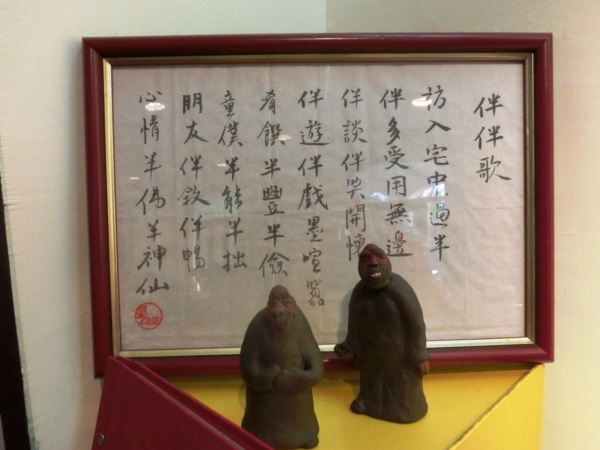 伴伴歌
訪入宅中過半
伴多受用無邊
伴談伴笑開懷
伴遊伴戲墨喧囂
肴饌半豐半儉
童僕半能半拙
朋友伴敘伴暢
心情半偽半神仙